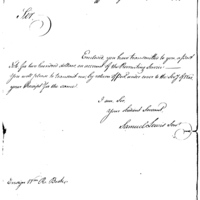 Sir
Enclosed you have transmitted to you a post
Bill for two hundred dollars on account of the Recruiting Service
You will please to transmit me, by return of post under cover to the Secy of War
your Receipt for the same
I am Sir,
Your obedient Servant
Samuel Lewis Senr
Ensign Wm R. Boote